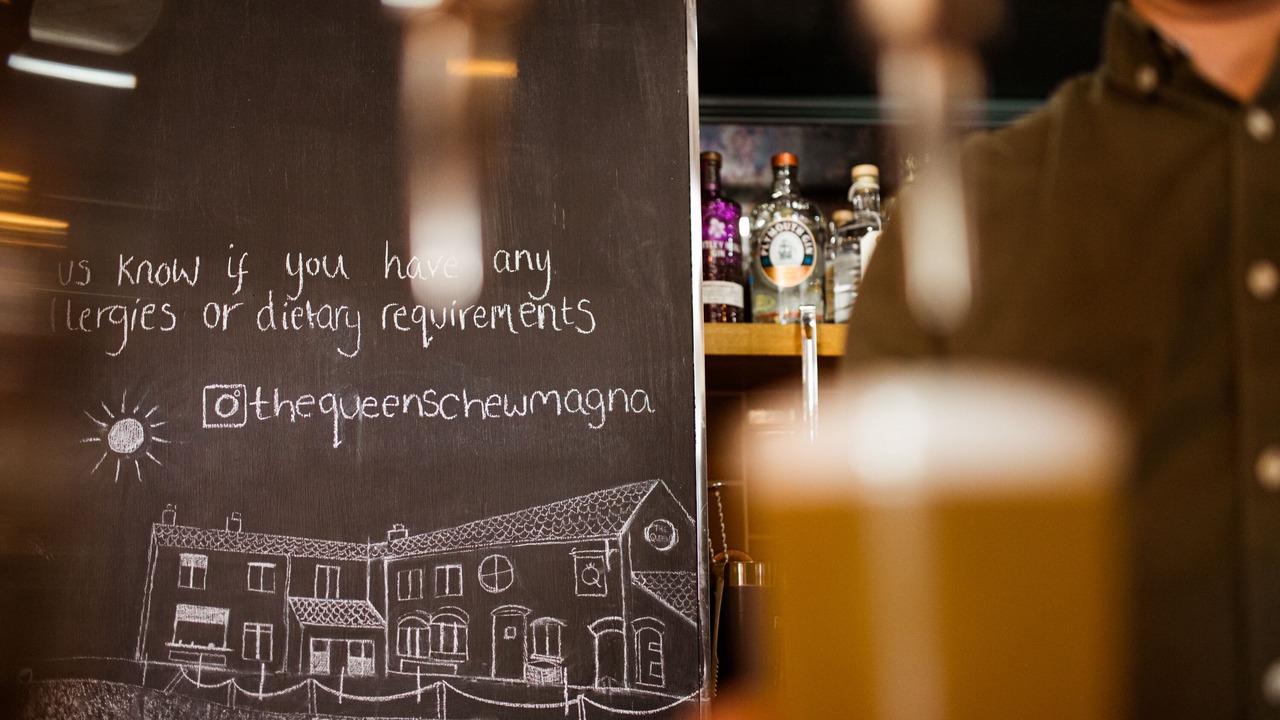 us know if you have any
llergies or dietary requirements
@thequeenschewmagna
THE
QUEENS
Q
PLYMOUTH GIN
TLEY
GIN